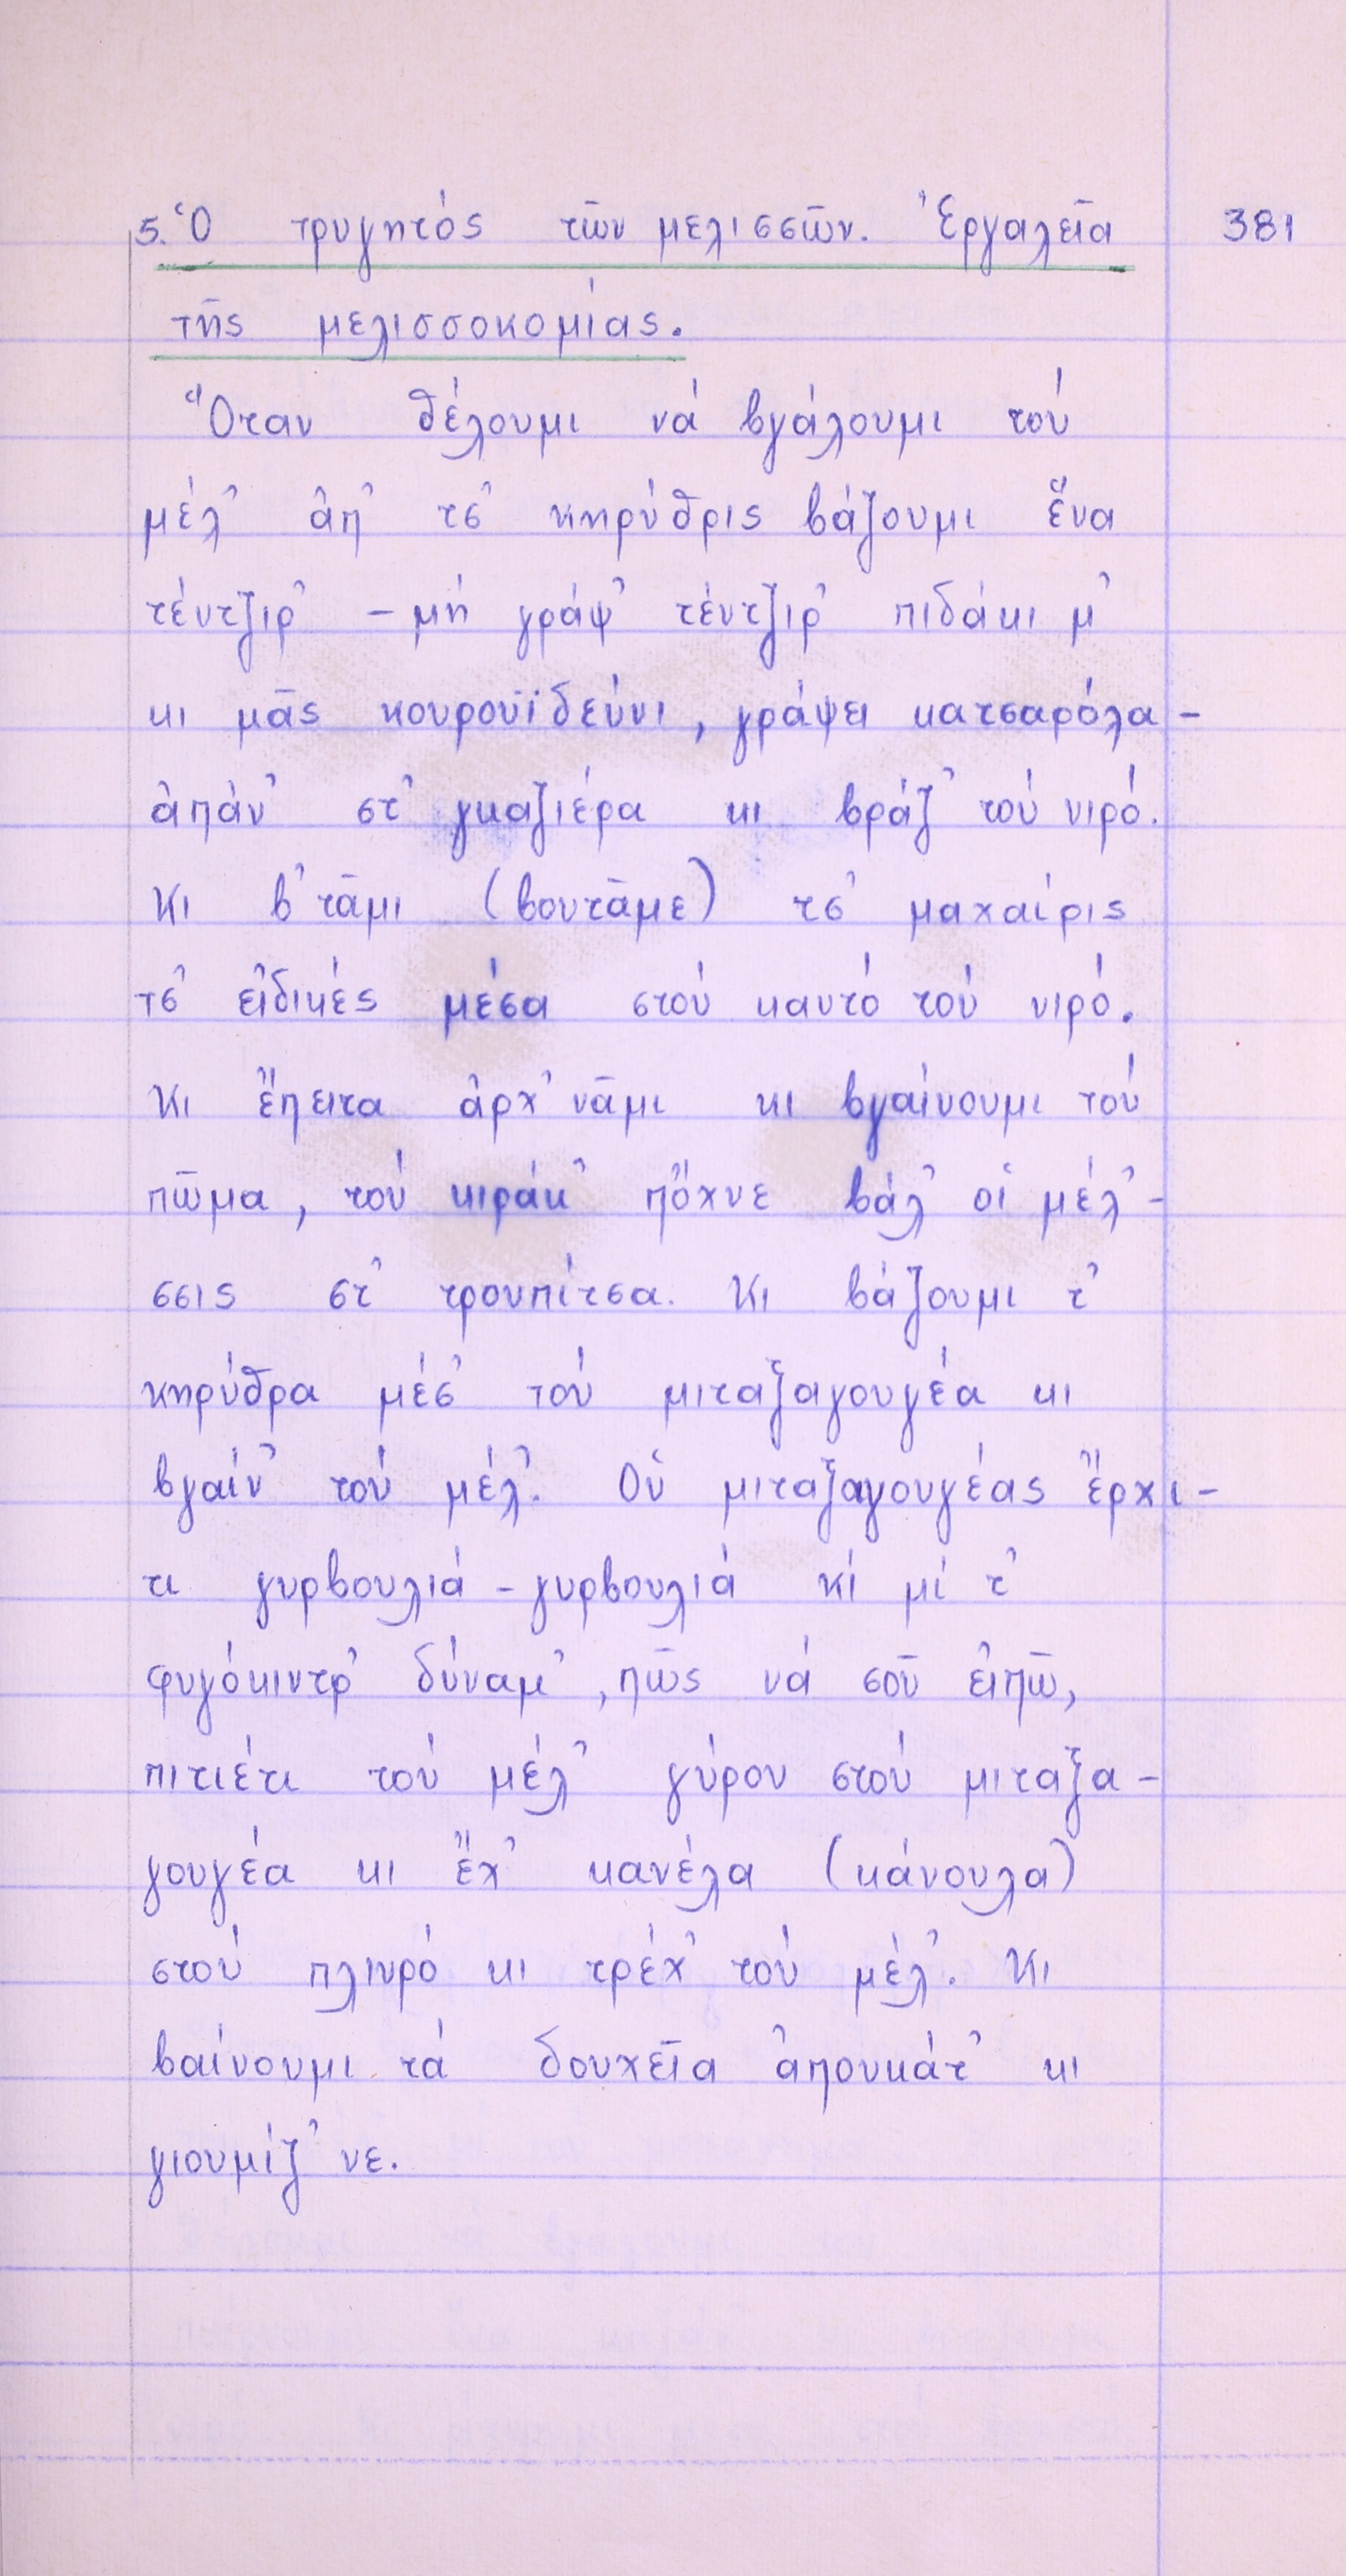 5. Ὁ τρυγητός τῶν μελισσῶν. Ἐργαλεῖα 381
τῆς μελισσοκομίας.
Ὅταν θέλουμι νά βγάλουμι τού
μέλ' ἀπ' τσ' κηρύθρις βάζουμι ἕνα
τέντζιρ' - μή γράψ' τέντζιρ' πιδάκι μ'
κι μᾶς κουρουϊδεύνι, γράψει κατσαρόλα -
ἀπάν' στ' γκαζιέρα κι βράζ' τού νιρό.
Κι β'τᾶμι (βουτᾶμε) τσ' μαχαίρις
τσ' εἰδικές μέσα στού καυτό τού νιρό.
Κι ἔπειτα ἀρχ'νᾶμι κι βγαίνουμι τού
πῶμα, τού κιράκ' πὄχνε βάλ' οἱ μέλ'-
σσις στ' τρουπίτσα. Κι βάζουμι τ'
κηρύθρα μέσ' τού μιταξαγουγέα κι
βγαίν' τού μέλ'. Οὑ μιταξαγουγέας ἔρχι-
τι γυρβουλιά - γυρβουλιά κί μί τ'
φυγόκιντρ' δύναμ', πῶς νά σοῦ εἰπῶ,
πιτιέτι τού μέλ' γύρου στού μιταξα-
γουγέα κι ἔχ' κανέλα (κάνουλα)
στού πλιυρό κι τρέχ' τού μέλ'. Κι
βαίνουμι τά δουχεῖα ἀπουκάτ' κι
γιουμίζ'νε.